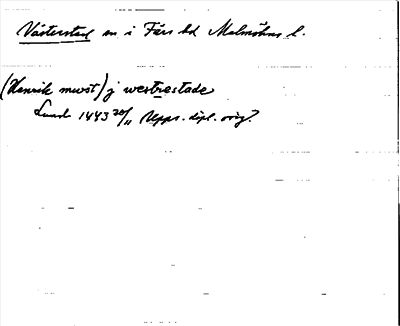 Västerstad sn i Färs hd Malmöhus l.
(Henrik mwst) j westrestade
Lund 1443 20/11 Upps. dipl. orig.